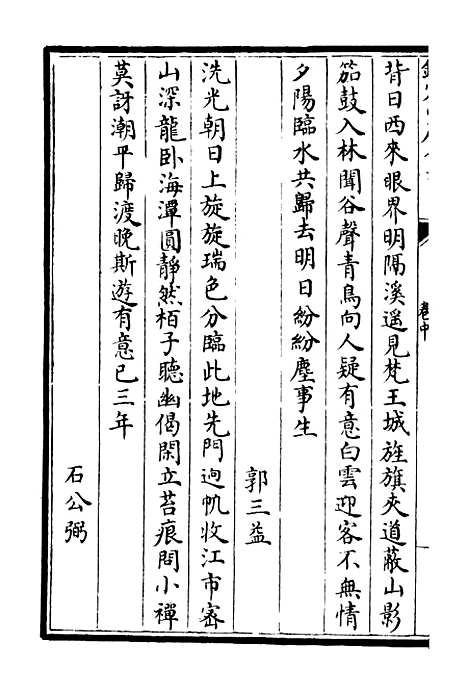 卷中
背日西來眼界明隔溪遥見梵王城旌旗夾道蔽山影
笳鼓入林聞谷聲青鳥向人疑有意白雲迎客不無情
夕陽臨水共歸去明日紛紛塵事生
郭三益
洗光朝日上旋旋瑞色分臨此地先門逈帆收江市宻
山深龍卧海潭圓靜然栢子聽幽偈閑立苔痕問小禪
莫訝潮平歸渡晚斯遊有意已三年
石公弼